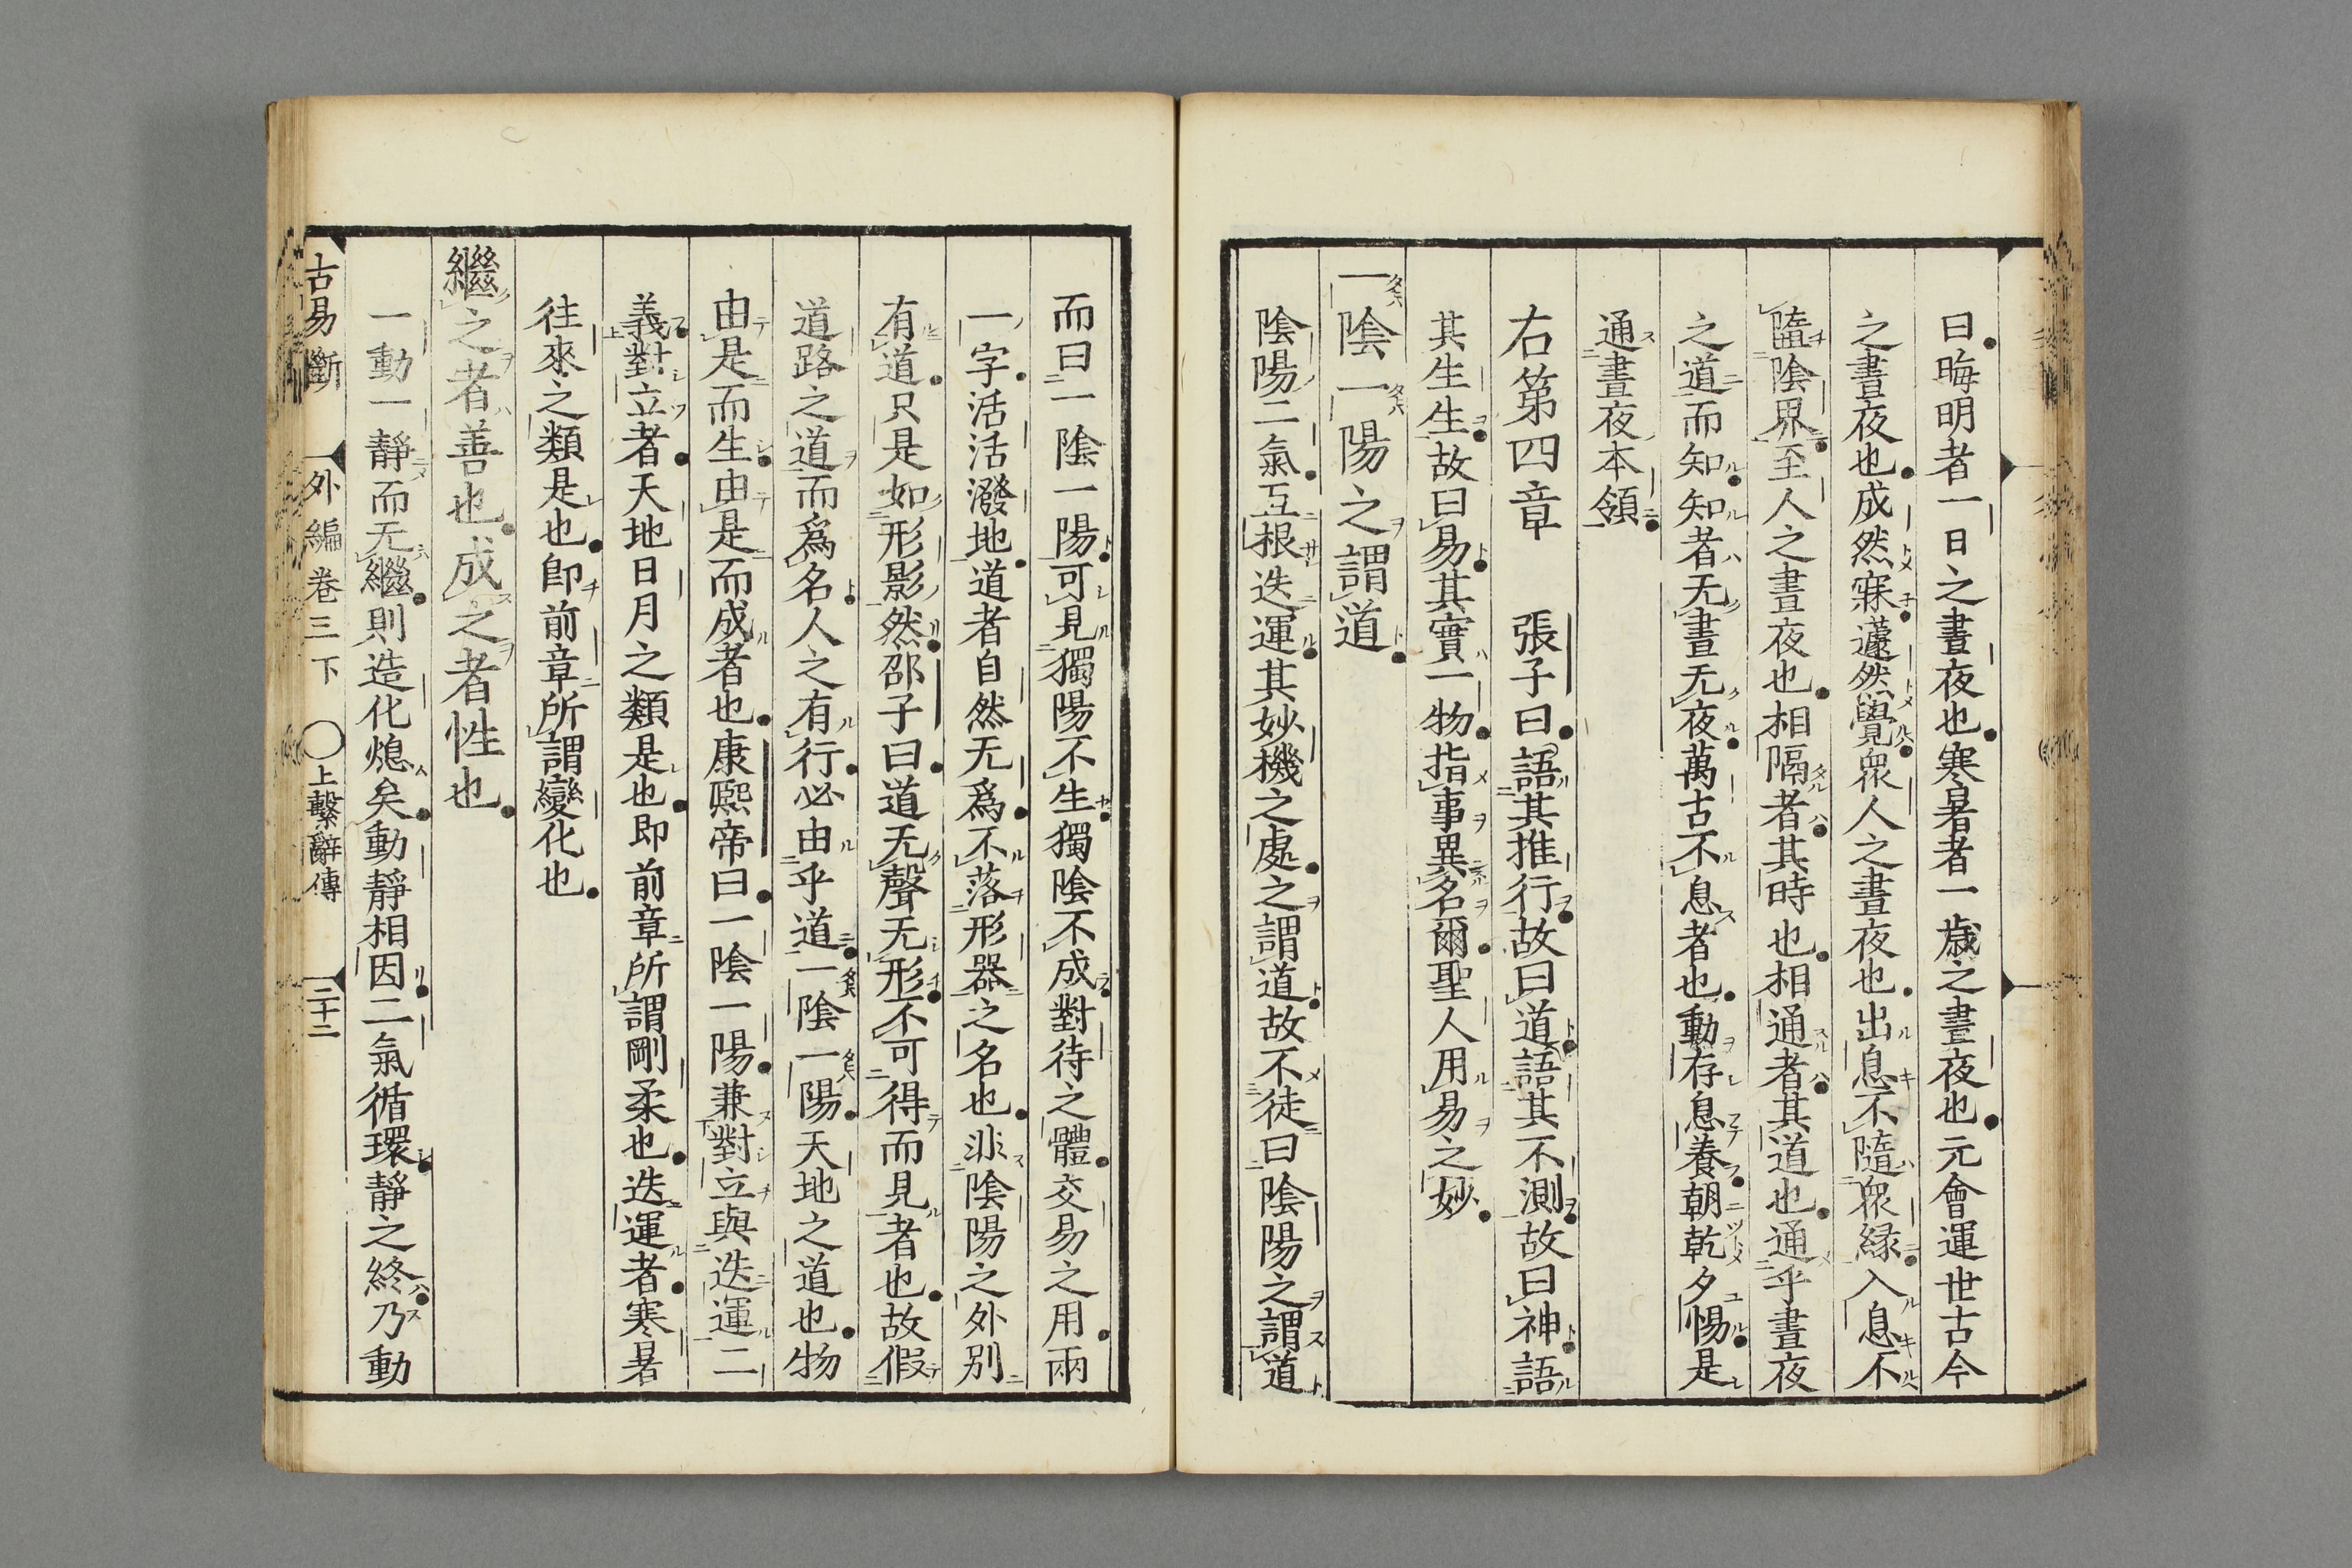 曰晦明者一日之晝夜也寒暑者一歲之晝夜也元會運世古今
之晝夜也成然寐蘧然覺衆人之晝夜也出息不隨衆縁入息不
墮陰界至人之晝夜也相隔者其時也相通者其道也通乎晝夜
之道而知知者无晝无夜萬古不息者也動存息養朝乾夕惕是
通晝夜本領
右第四章　張子曰語其推行故曰道語其不測故曰神語
其生生故曰易其實一物指事異名爾聖人用易之妙
一陰一陽之謂道
陰陽二氣互根迭運其妙機之處之謂道故不徒曰陰陽之謂道
而曰一陰一陽可見獨陽不生獨陰不成對待之體交易之用兩
一字活活潑地道者自然无爲不落形器之名也非陰陽之外別
有道只是如形影然邵子曰道无聲无形不可得而見者也故假
道路之道而爲名人之有行必由乎道一陰一陽天地之道也物
由是而生由是而成者也康熙帝曰一陰一陽兼對立與迭運二
義對立者天地日月之類是也即前章所謂剛柔也迭運者寒暑
往來之類是也卽前章所謂變化也
繼之者善也成之者性也
一動一靜而无繼則造化熄矣動靜相因二氣循環靜之終乃動
古易斷　外編卷三下　〇上繫辭傳　二十二